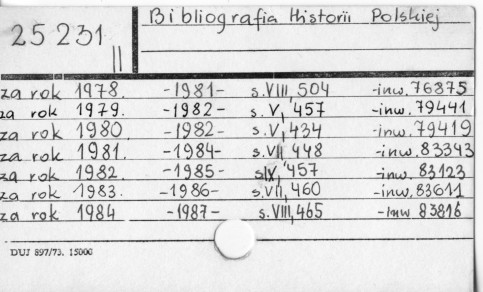 Bibliografia Historii Polskiej
25 231
II
za rok 1978. -1981- s.VIII, 504 -inw. 76875
za rok 1979. -1982- s.V, 457 -inw. 79441
za rok 1980 -1982- s.V, 434 -inw. 79419
za rok 1981. -1984- s.VII, 448 -inw. 83343
za rok 1982. -1985- s.IX, 457 -inw. 83123
za rok 1983. -1986- s.VII, 460 -inw. 83611
za rok 1984 -1987- s.VIII, 465 -inw 83816
DUJ 897/73. 15000